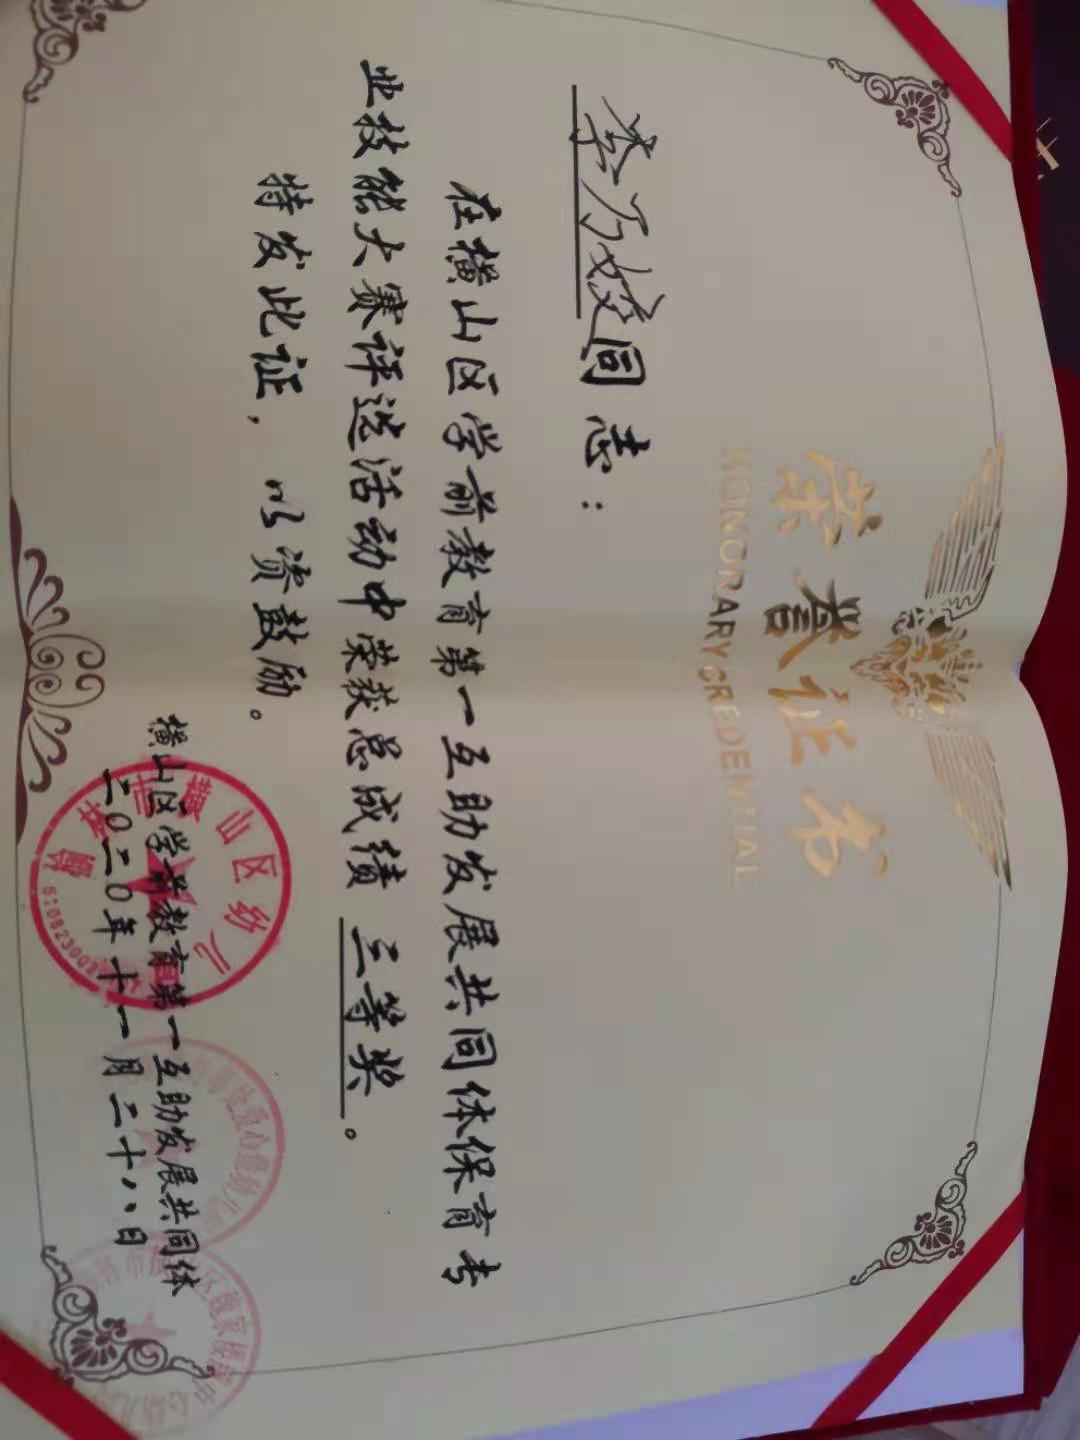 荣誉证书
HONORARY CREDENTIAL
同志:
在横山区学前教育第一互助发展共同体保育专
业技能大赛评选活动中荣获总成绩 三等奖。
特发此证,以资鼓励。
横山区学前教育第一互助发展共同体
二〇二〇年十一月二十八日